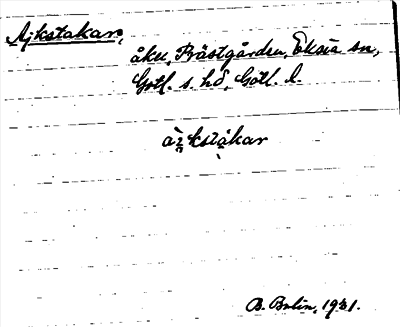 Ajkstakar,
åker, Prästgården, Eksta sn,
Gotl. s. hd, Gotl. l.
äi̯kstakar
B. Bolin, 1931.